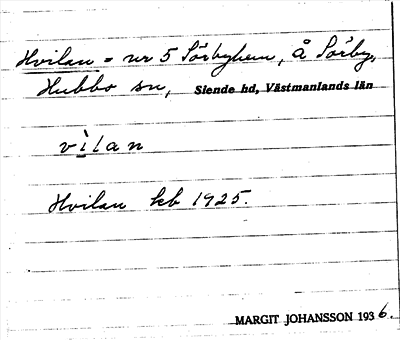 Hvilan = nr 5 Sörbyhem, å Sörby,
Hubbo sn, Siende hd, Västmanlands län
vìlan
Hvilan kb 1925.
MARGIT JOHANSSON 1936.